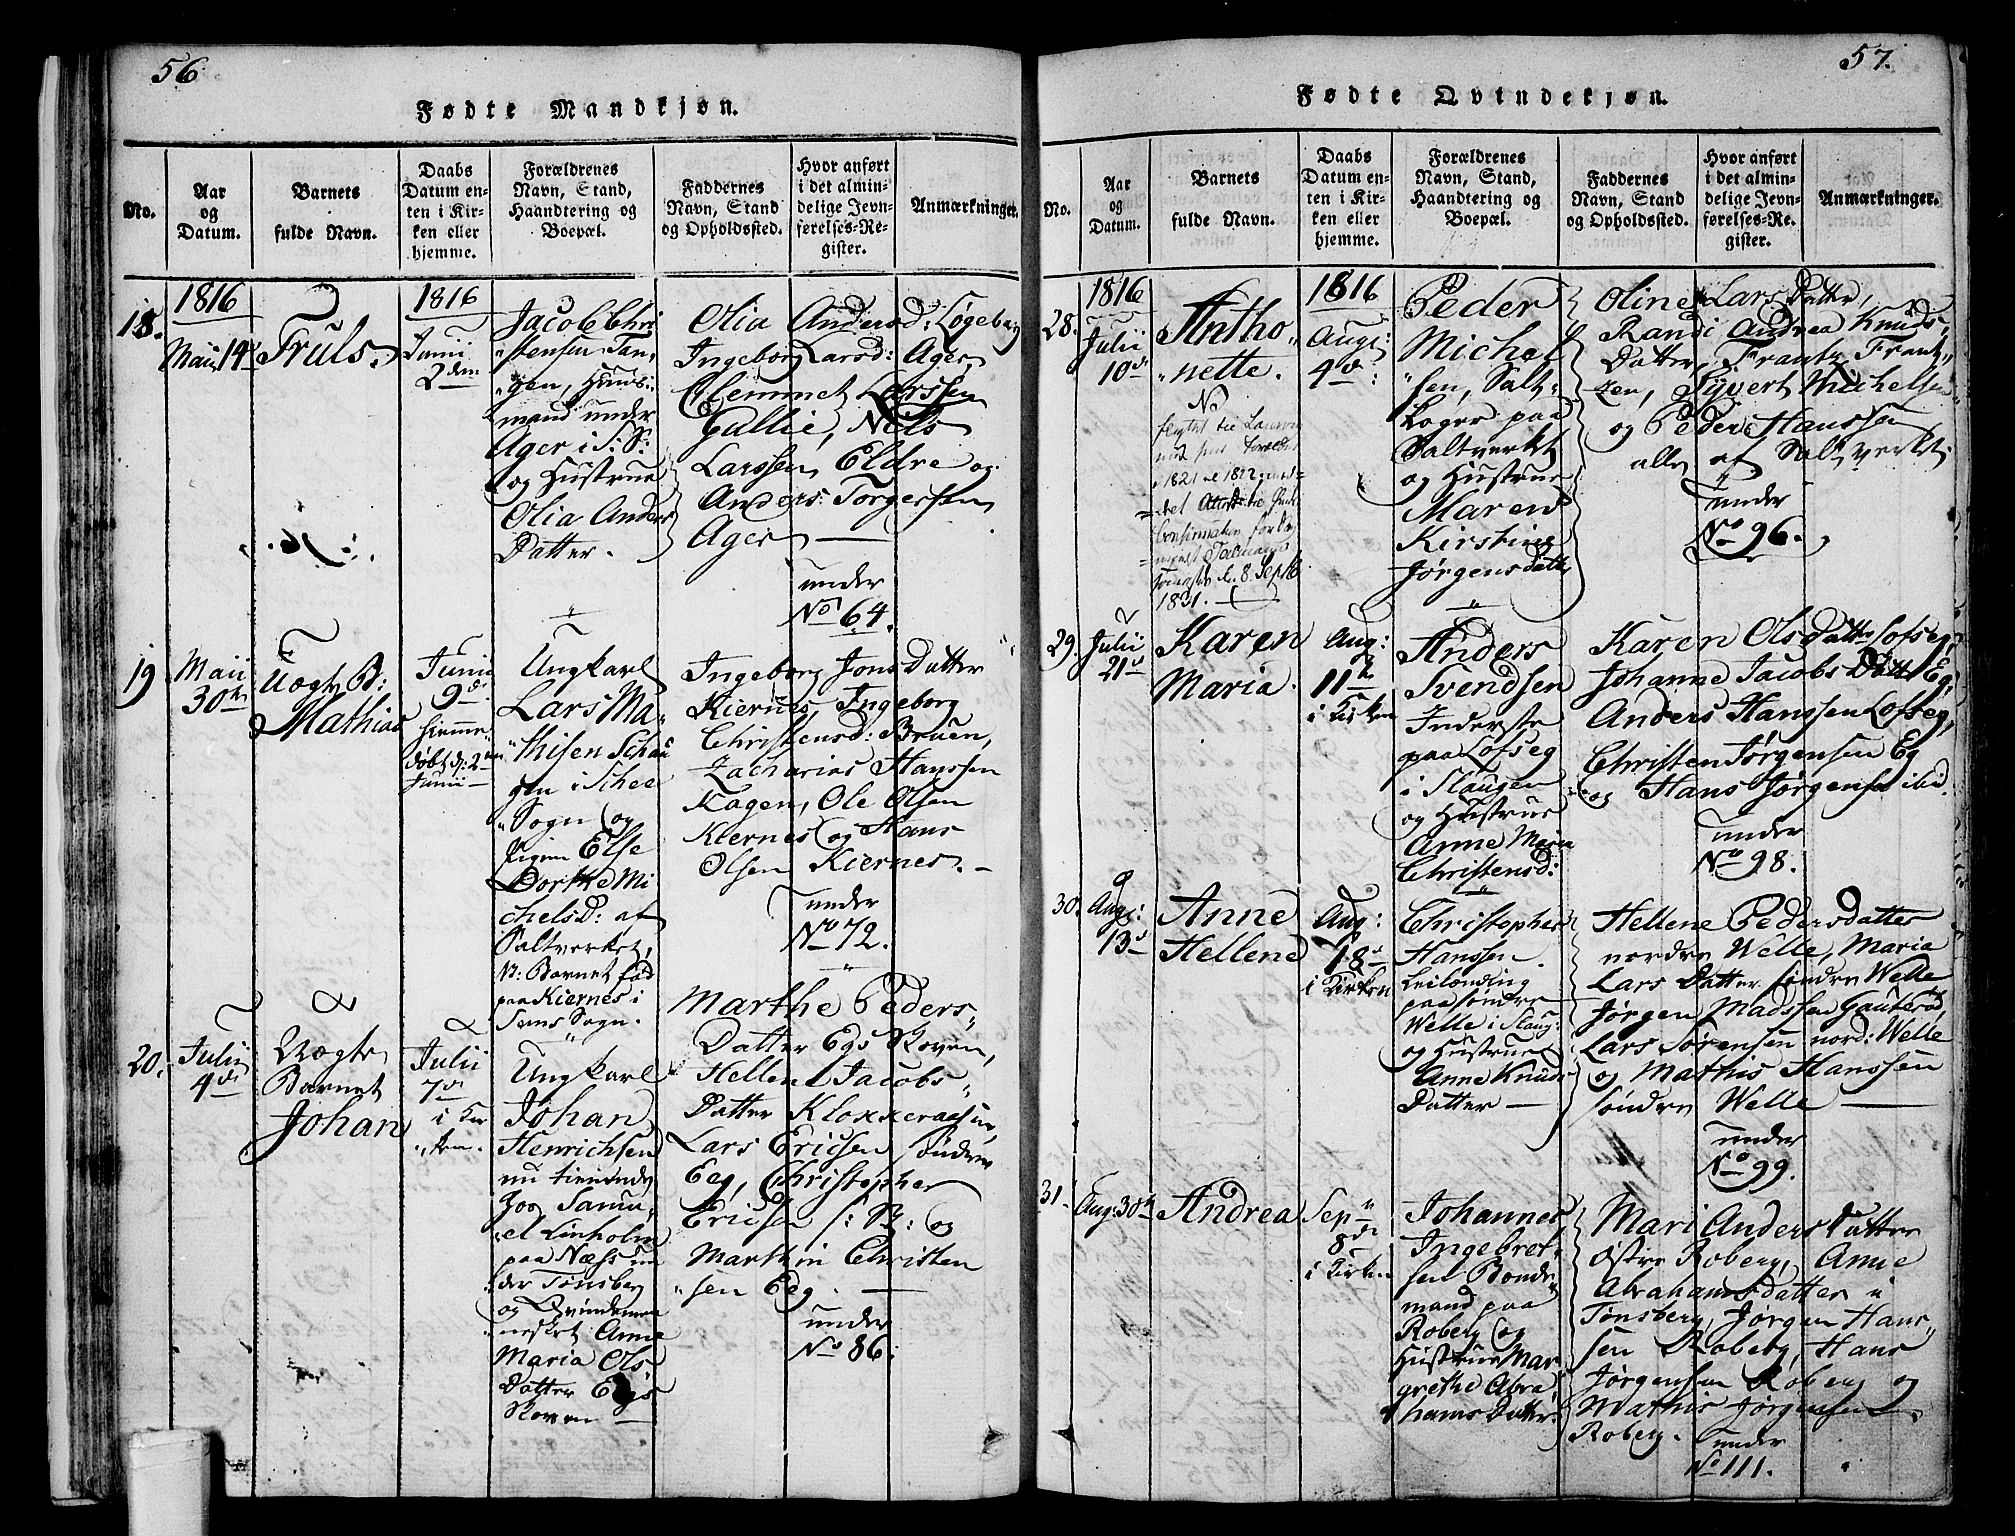 56
Fødte Mandkjøn.
No.
Aar
og
Datum.
Barnets
fulde Navn.
Daabs
Datum en-
ten i Kir-
ken eller
hjemme.
Forældrenes
Navn, Stand,
Haandtering og
Boepæl.
Faddernes
Navn, Stand
og Opholdssted.
Hvor anført
i det almin-
delige Jevn-
førelses-Re-
gister.
Anmærkninger.
18.
1816
Maii 14
Truls.
1816
Junii
2den
Jacob Chri
"stensen Tan,
"gen, Huus,
mand under
Ager i S: S:
og Hustrue
Olia Anders
Datter.
Olia Andersd: Løgeberg
Ingeborg Larsd: Ager,
Clemmet Larssen
Gullie, Nils
Larssen Eldre og
Anders Torgerssen
Ager —
under
No 64.
19
Maii
30te
Uægte B:
Mathias
Junii
9de
hiemme
døbt d: 2den
Junii —
Ungkarl
Lars Ma
"thisen Schau
gen i Schee
"Sogn og
Pigen Else
Dorthe Mi
chelsD: af
Saltverket,
N: Barnet fød
paa Kiernes i
Sems Sogn.
Ingeborg Jons Datter
Kiernes, Ingeborg
Christensd: Bruen,
Zacharias Hanssen
Kagen, Ole Olsen
Kiernes og Hans
Olsen Kiernes. —
under
No 72.
20.
Julii
4de
Uægte
Barnet
Johan
Julii
7de
i Kir
"ken.
Ungkarl
Johan
Henrichsen
nu tienende
hos Samu,
"el Linholm
paa Næss un
der Tønsberg
og Qvindeme
nesket Anne
Maria Ols
Datter Egs
Skoven —
Marthe Peders,
Datter Egs Skoven,
Hellene Jacobs,
Datter Kloxxeraasen,
Lars Ericsen søndre
Eeg, Christopher
Ericsen /: N: og
Marthin Christen
"sen Eeg. —
under
No 86.
57.
Fødte Qvindekjøn.
No.
Aar
og
Datum.
Barnets
fulde Navn.
Daabs
Datum en-
ten i Kir-
ken eller
hjemme.
Forældrenes
Navn, Stand,
Haandtering og
Boepæl.
Faddernes
Navn, Stand
og Opholdssted.
Hvor anført
i det almin-
delige Jevn-
førelses-Re-
gister.
Anmærkninger.
28.
1816
Julii
10de
Antho
"nette.
No
flyttet til Laurvig
1821 1822
8 Sept
1831.
1816
Aug:
4de:
Peder
Michel
"sen, Salt,
Koger paa
Saltverket
og Hustrue
Maren
Kirstine
Jørgensdatter
Oline Lars Datter,
Randi Andrea Knuds,
Datter, Frantz Frant,
zen, Syvert Michelsen
og Peder Hanssen
alle af Saltverket.
under
No 96.
29.
Julii
21de
Karen
Maria.
Aug:
11te
i Kirken
Anders
Svendsen
Inderste
paa Lofseg
i Slaugen
og Hustrue
Anne Maria
Christensd:
Karen Olsdatter Lofseg,
Johanne Jacobs Datter Eg,
Anders Hanssen Lofseg,
Christen Jørgensen Eg
og Hans Jørgensen ibid.
under
No 98.
30.
Aug:
13de
Anne
Hellene
Aug:
18de
i Kirken
Christopher
Hanssen.
Leilænding
paa søndre
Welle i Slaug:
og Hustrue
Anne Knuds
Datter —
Hellene Pedersdatter
nordre Welle, Maria
Lars Datter søndre Welle
Jørgen Madssen Gauterød,
Lars Sørensen nord: Welle
og Mathis Hanssen
søndre Welle —
under
No 99.
31.
Aug: 30te
Andrea
Sep
8de
i Kirken
Johannes
Ingebret,
sen Bonde
mand paa
Roberg og
Hustrue Mar
grethe Abra
hams Datter.
Mari Anders Datter
østre Roberg, Anne
Abrahamsdatter i
Tønsberg, Jørgen Hans,
sen Roberg, Hans
Jørgensen Roberg og
Mathis Jørgensen
Roberg.
under
No 111.